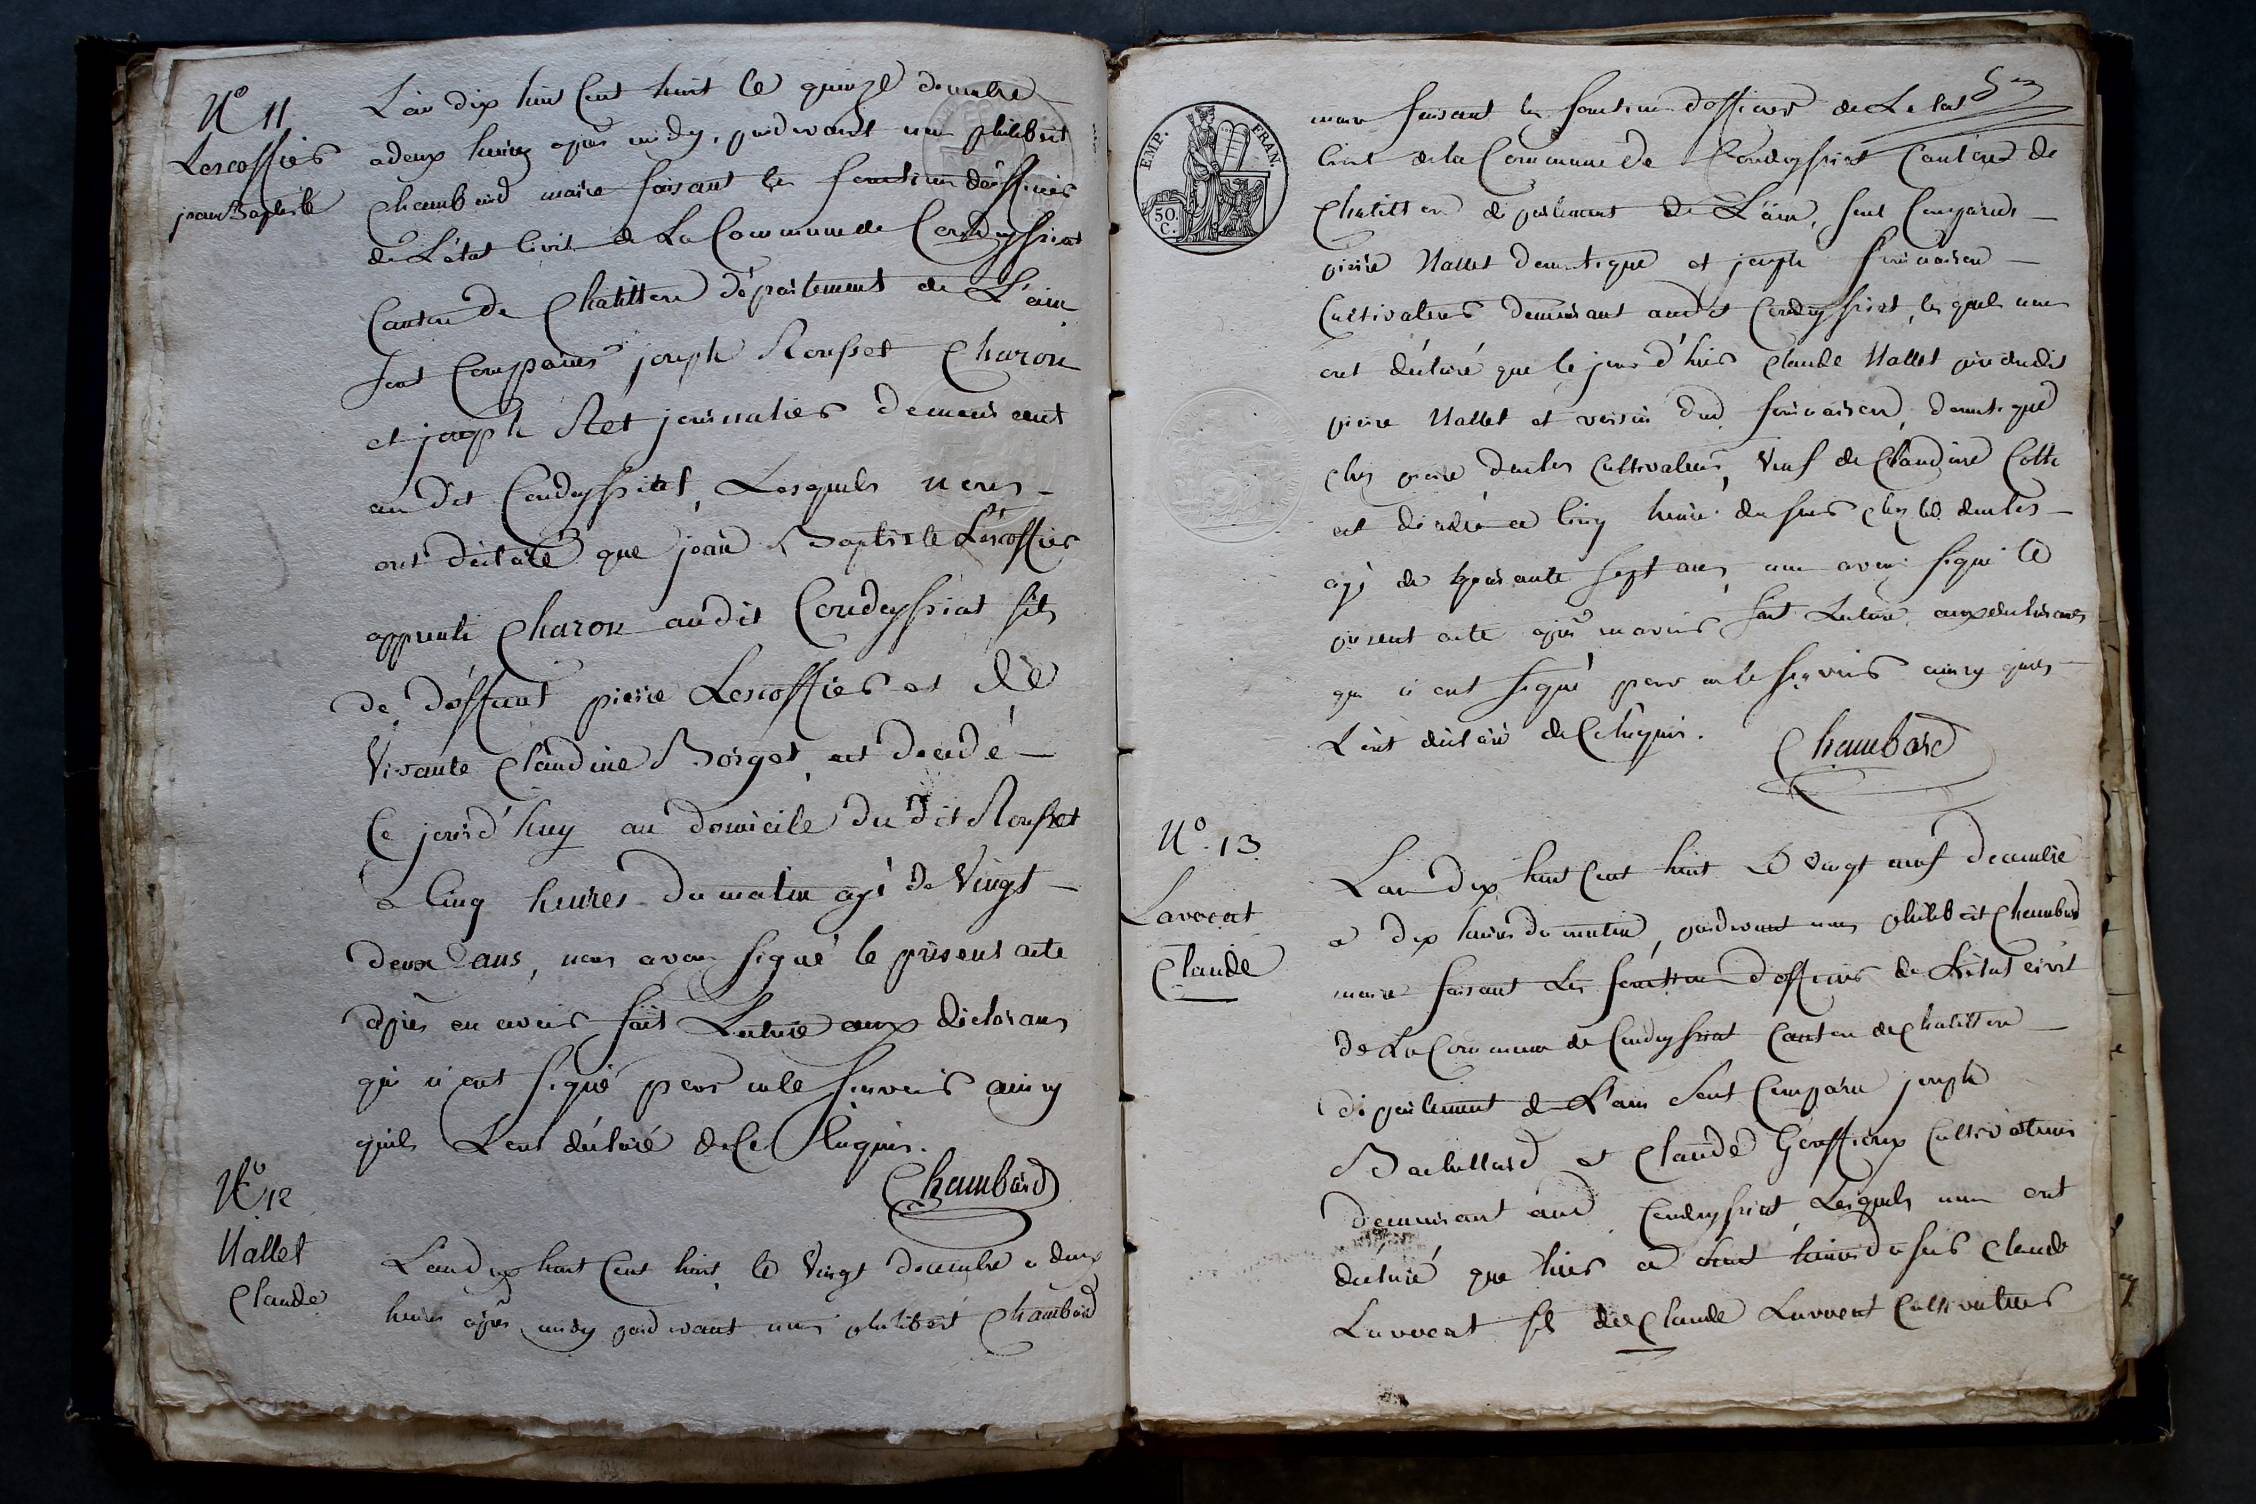 N° 11
Lescoffier
jean Baptiste
L'an dix huit Cent huit le quinze decembre
a deux heures après midy, pardevant nous philibert
Chambard maire faisant les fonctions d'officier
de L'état Civil de La Commune de Condeyssiat
Canton de Chatillon département de L'ain
sont Comparus joseph Rousset Charon
et joseph Ret journalier demeurant
au dit Condeyssiat, Lesquels nous
ont déclaré que jean Baptiste Lescoffier
apprenti Charon audit Condeyssiat fils
de deffunt pierre Lescoffier et de
Vivante Claudine Borget est decedé
Ce jourd'huy au domicile du dit Rousset
a Cinq heures du matin agé de Vingt
deux ans, nous avons signé le présent acte
après en avoir fait Lecture aux déclarans
qui n'ont signé pour ne le sçavoir ainsy
quils L'ont déclaré de Ce Requis.
Chambard
N° 12
Nallet
Claude
L'an dix huit Cent huit, le Vingt decembre a deux
heures après midy pardevant nous philibert Chambard
maire faisant les fonctions d'officier de L'etat
Civil de la Commune de Condeyssiat Canton de
Chatillon département de L'ain, sont Comparus
pierre Nallet domestique et joseph
Cultivateur demeurant audit Condeyssiat, lesquels nous
ont déclaré que le jour d'hier Claude Nallet père dudit
pierre Nallet et voisin dud. domestique
chez pierre Cultivateur, Veuf de Claudine Cotte
est décédé a Cinq heures du soir chez led.
agé de sept ans, nous avons signé le
présent acte après en avoir fait Lecture aux déclarans
qui n'ont signé pour ne le sçavoir ainsy quils
L'ont déclaré de Ce Requis.
Chambard
EMP. FRAN.
50. C.
N° 13
Lavocat
Claude
L'an dix huit Cent huit Le Vingt neuf decembre
a dix heures du matin, pardevant nous philibert Chambard
maire faisant Les fonctions d'officier de L'état civil
de La Commune de Condeyssiat Canton de Chatillon
département de L'ain sont Comparu joseph
Bachellard et Claude Cultivateurs
demeurant aud. Condeyssiat, Lesquels nous ont
déclaré que hier a heures du soir Claude
Lavocat fils de Claude Lavocat Cultivateur